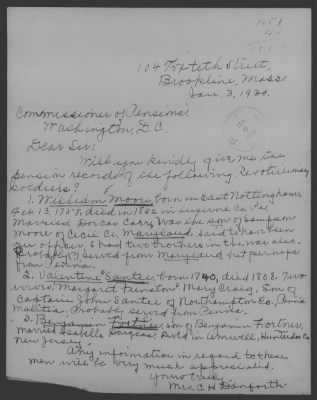 104 Toxteth Street,
Brookline, Mass
Jan. 3, 1930.
Commissioner of Pensions,
Washington, D.C.
Dear Sir:
Will you kindly give me the
pension records of the following Revolutionary
soldiers?
1. William Moore, born in East Nottingham
Feb 13, 1758, died in 1822 in Luzerne Co. Pa
Married Dorcas Carr. Was the son of Sampson
Moore of Cecil Co, Maryland. Said to have been
an officer, & had two brothers in the war also.
Probably served from Maryland but perhaps
from Penna.
2. Valentine Santee, born 1740, died 1808. Two
wives, Margaret Mary Craig, Son of
Captain John Santee of Northampton Co, Penna
Militia. Probably served from Penna.
3. Benjamin Fortner, son of Benjamin Fortner,
married Isabella Lived in Amwell, Hunterdon Co
New Jersey.
Any information in regard to these
men will be very much appreciated.
Yours truly,
Mrs. C H Danforth